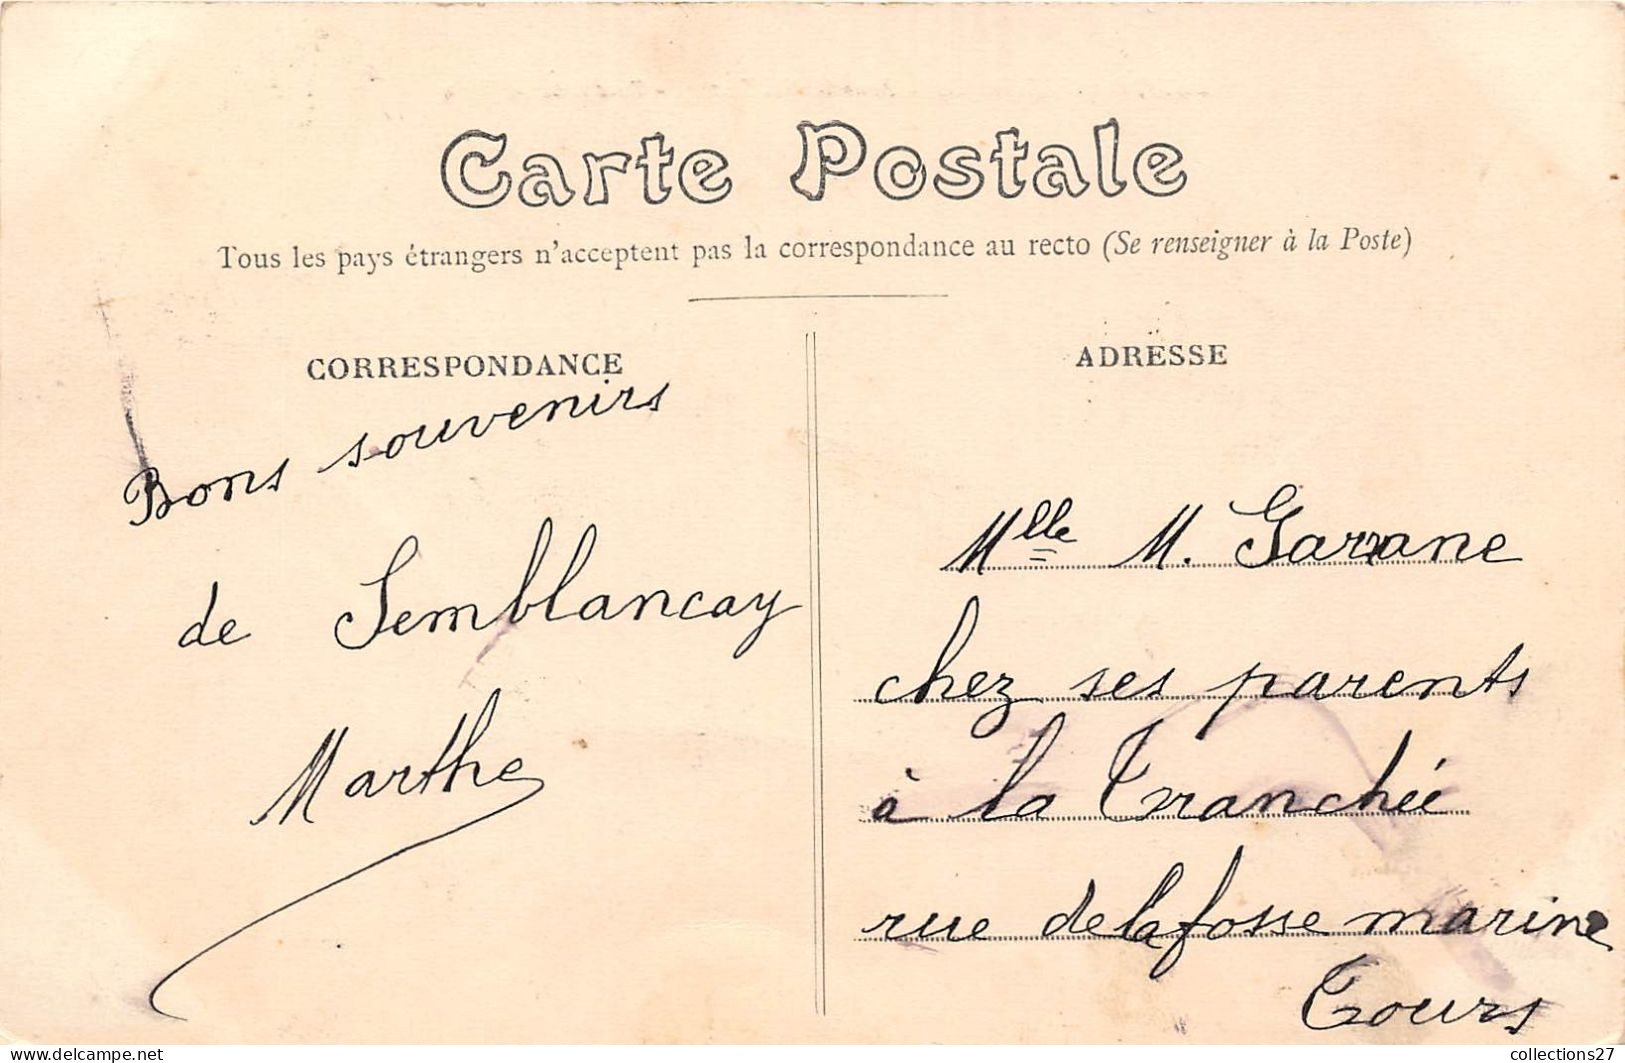 Carte Postale
Tous les pays étrangers n'acceptent pas la correspondance au recto (Se renseigner à la Poste)
CORRESPONDANCE
Bons souvenirs
de Semblancay
Marthe
ADRESSE
Mlle M.
chez ses parents
à la Tranchée
rue de la fosse marine
Tours
collections27